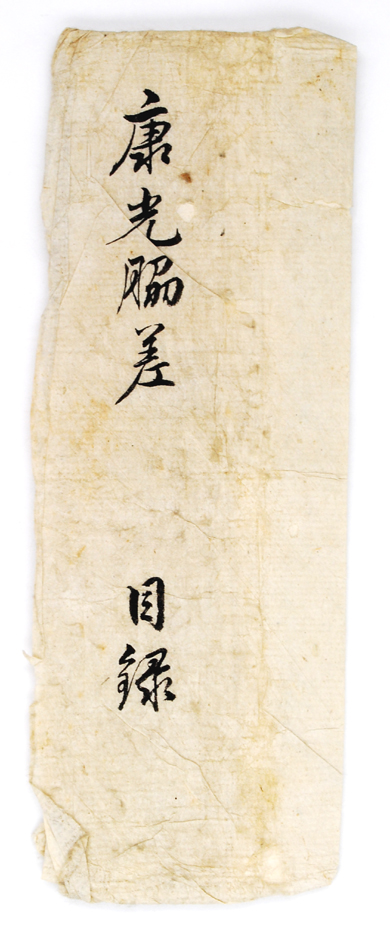 康光脇差　目録